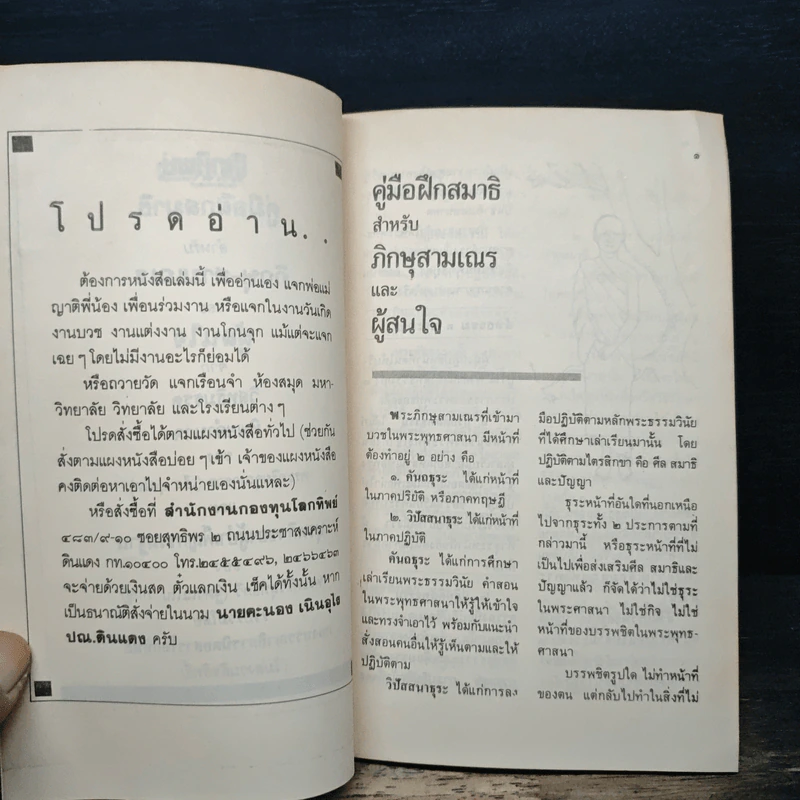 โปรดอ่าน..
ต้องการหนังสือเล่มนี้ เพื่ออ่านเอง แจกพ่อแม่
ญาติพี่น้อง เพื่อนร่วมงาน หรือแจกในงานวันเกิด
งานบวช งานแต่งงาน งานโกนจุก แม้แต่จะแจก
เฉย ๆ โดยไม่มีงานอะไรก็ย่อมได้
หรือถวายวัด แจกเรือนจำ ห้องสมุด มหา-
วิทยาลัย วิทยาลัย และโรงเรียนต่าง ๆ
โปรดสั่งซื้อได้ตามแผงหนังสือทั่วไป (ช่วยกัน
สั่งตามแผงหนังสือบ่อย ๆ เข้า เจ้าของแผงหนังสือ
คงติดต่อหาเอาไปจำหน่ายเองนั่นแหละ)
หรือสั่งซื้อที่ สำนักงานกองทุนโลกทิพย์
๔๘๓/๙-๑๐ ซอยสุทธิพร ๒ ถนนประชาสงเคราะห์
ดินแดง กท.๑๐๔๐๐ โทร.๒๔๕๕๔๙๖, ๒๔๖๖๔๖๓
จะจ่ายด้วยเงินสด ตั๋วแลกเงิน เช็คได้ทั้งนั้น หาก
เป็นธนาณัติสั่งจ่ายในนาม นายคะนอง เนินอุไร
ปณ.ดินแดง ครับ
๑
คู่มือฝึกสมาธิ
สำหรับ
ภิกษุสามเณร
และ
ผู้สนใจ
พระภิกษุสามเณรที่เข้ามา
บวชในพระพุทธศาสนา มีหน้าที่
ต้องทำอยู่ ๒ อย่าง คือ
๑. คันถธุระ ได้แก่หน้าที่
ในภาคปริยัติ หรือภาคทฤษฎี
๒. วิปัสสนาธุระ ได้แก่หน้าที่
ในภาคปฏิบัติ
คันถธุระ ได้แก่การศึกษา
เล่าเรียนพระธรรมวินัย คำสอน
ในพระพุทธศาสนาให้รู้ให้เข้าใจ
และทรงจำเอาไว้ พร้อมกับแนะนำ
สั่งสอนคนอื่นให้รู้เห็นตามและให้
ปฏิบัติตาม
วิปัสสนาธุระ ได้แก่การลง
มือปฏิบัติตามหลักพระธรรมวินัย
ที่ได้ศึกษาเล่าเรียนมานั้น โดย
ปฏิบัติตามไตรสิกขา คือ ศีล สมาธิ
และปัญญา
ธุระหน้าที่อันใดที่นอกเหนือ
ไปจากธุระทั้ง ๒ ประการตามที่
กล่าวมานี้ หรือธุระหน้าที่ที่ไม่
เป็นไปเพื่อส่งเสริมศีล สมาธิและ
ปัญญาแล้ว ก็จัดได้ว่าไม่ใช่ธุระ
ในพระศาสนา ไม่ใช่กิจ ไม่ใช่
หน้าที่ของบรรพชิตในพระพุทธ-
ศาสนา
บรรพชิตรูปใด ไม่ทำหน้าที่
ของตน แต่กลับไปทำในสิ่งที่ไม่